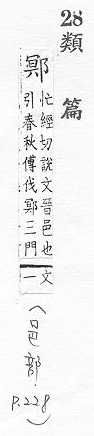 28
類篇
鄍
忙經切說文晉邑也
引春秋傳伐鄍三門
文一
(邑部.
P.228)